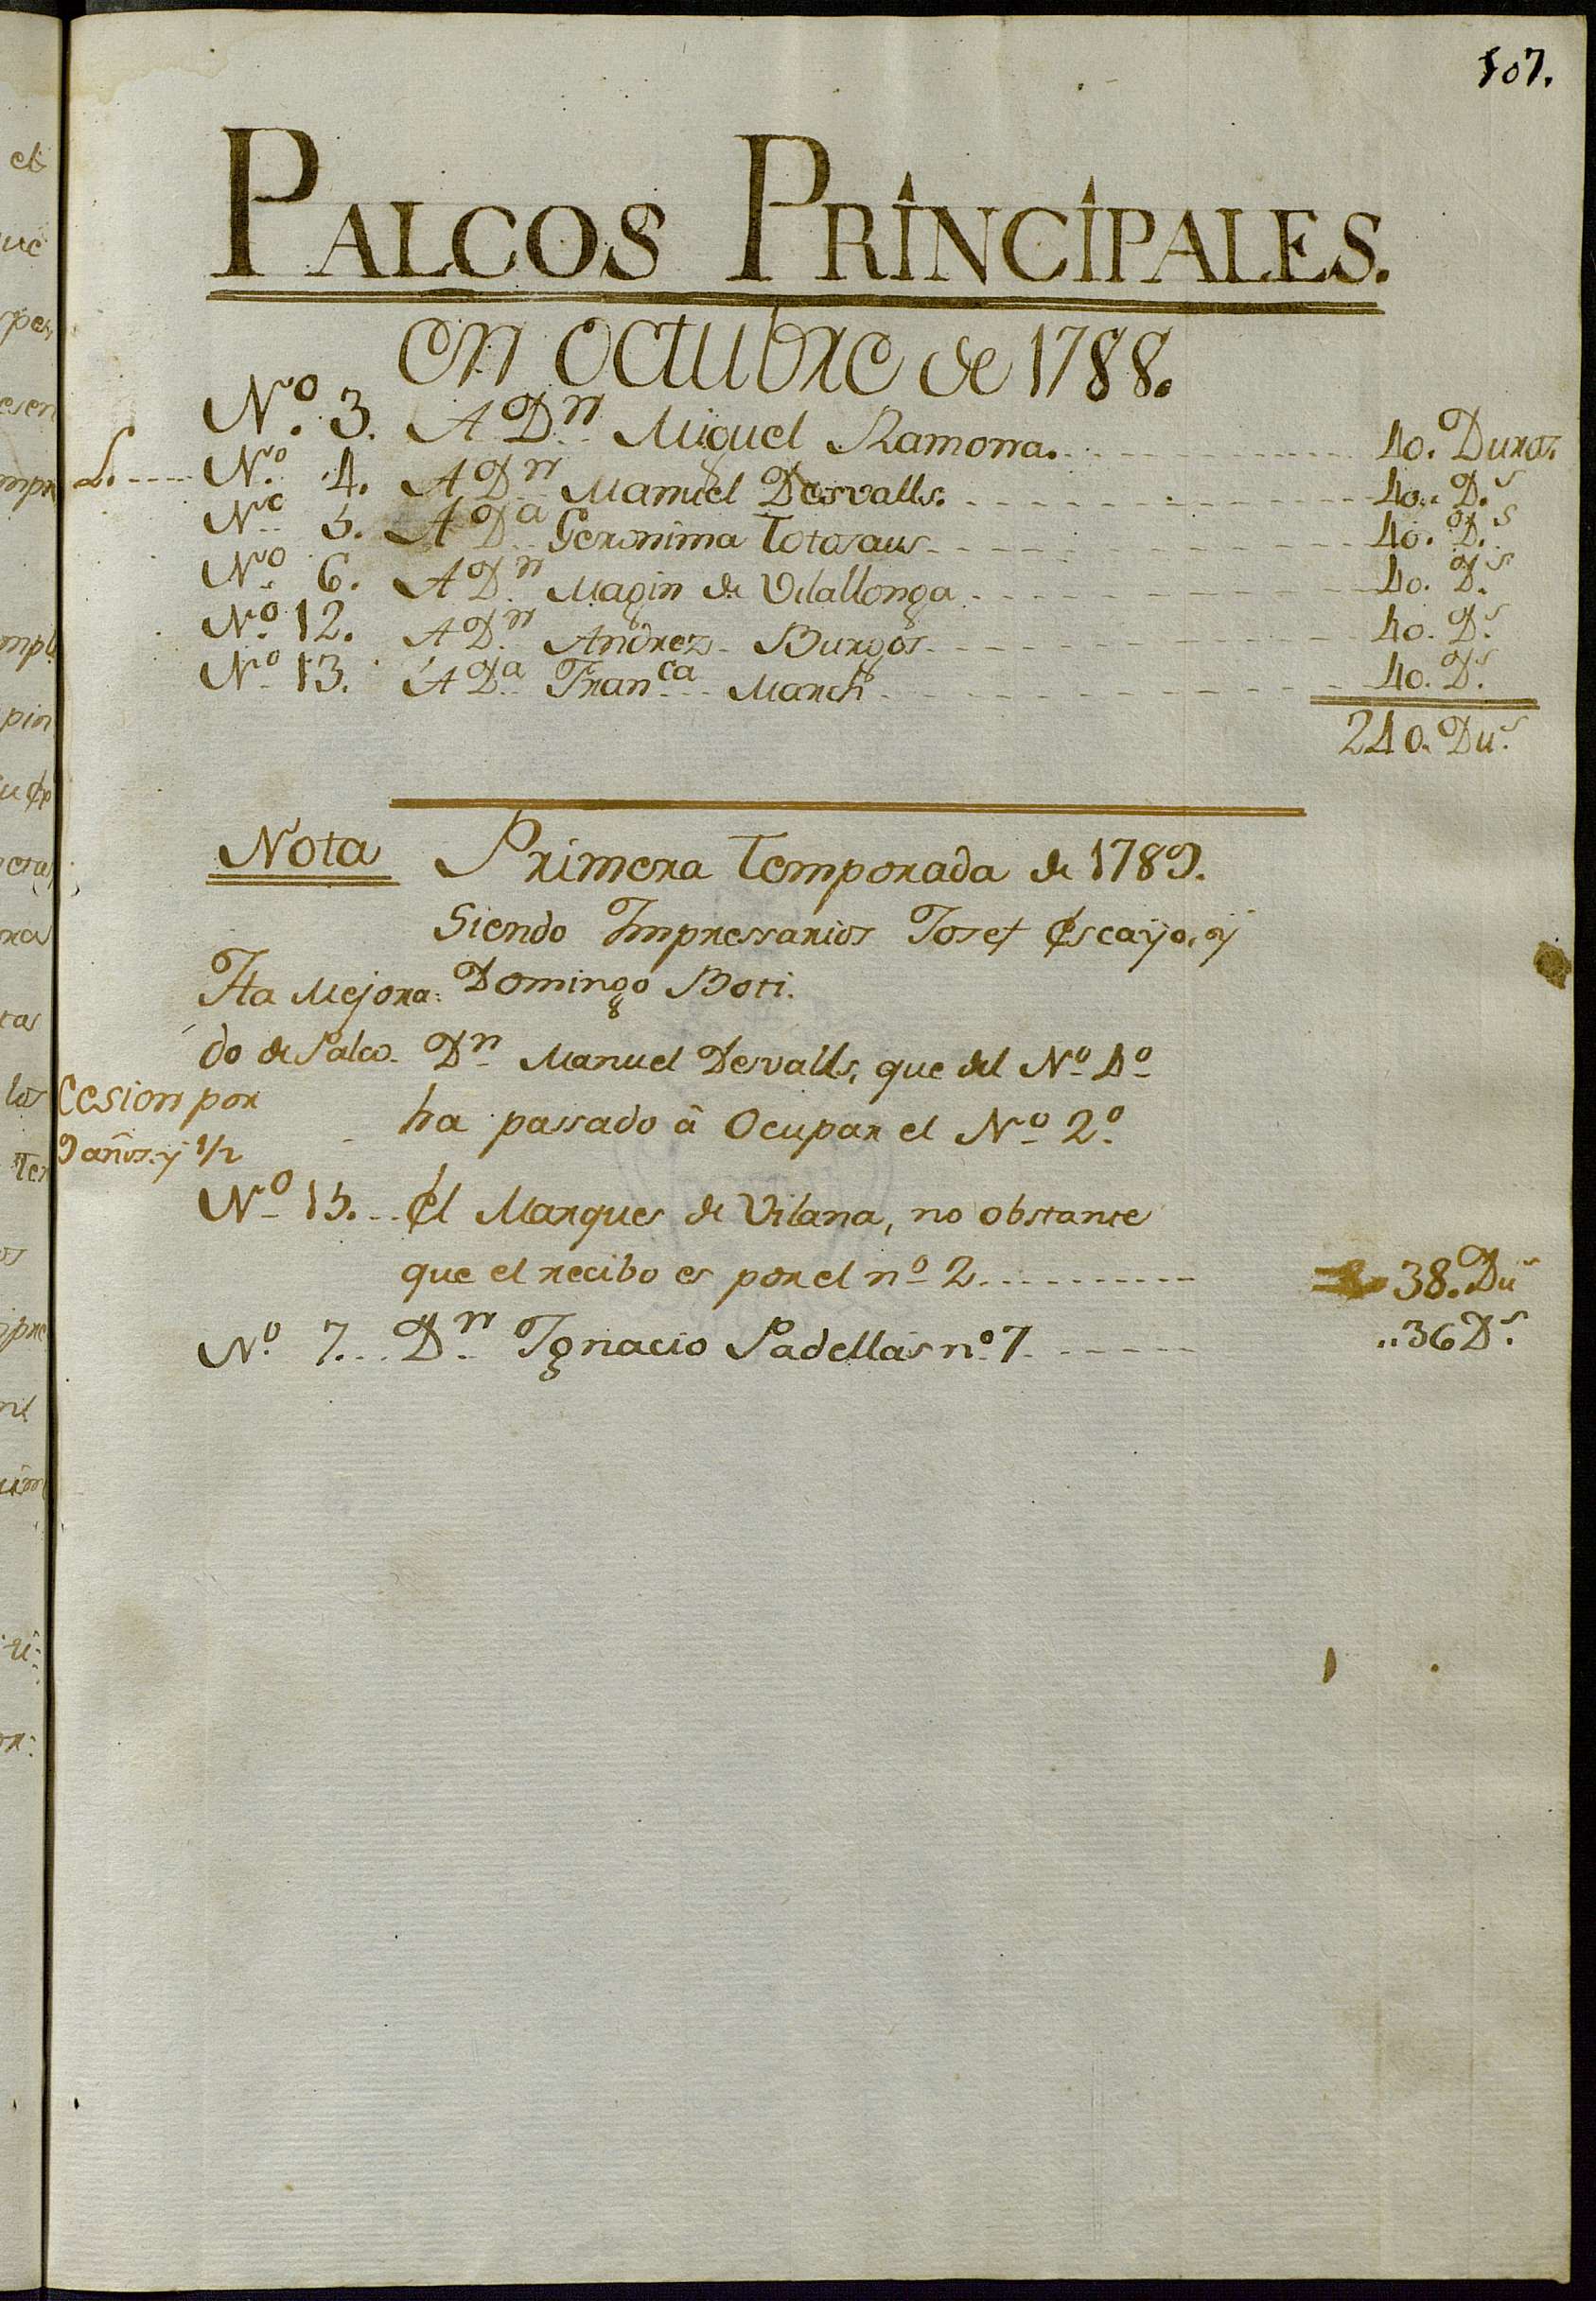 107.
PALCOS PRINCIPALES.
en octubre de 1788.
Nº. 3. A Dn Miguel Ramona. 40. Duros.
Nº. 4. A Dn Manuel Desvalls. 40. Ds
Nº 5. A Da Geronima Totosaus 40. Ds
Nº 6. A Dn Magin de Vilallonga 40. Ds
Nº. 12. A Dn Andrez Burgos 40. Ds
Nº 13. A Da Franca March 40. Ds
240. Dus
Nota Primera Temporada de 1789.
Siendo Impressarios Josef Escayo, y
Domingo Boti.
Ha Mejora:
do de Palco. Dn Manuel Desvalls, que del Nº 4º
ha passado â Ocupar el Nº 2º
Cesion por
9 años y 1/2
Nº 15. El Marques de Vilana, no obstante
que el recibo es por el nº 2 38. Dus
Nº. 7. Dn Ignacio Padellás nº 7 36 Ds